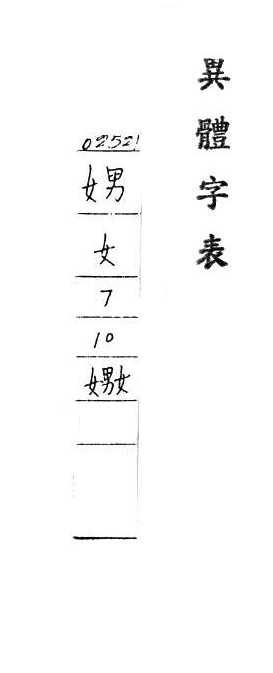 異體字表
02521
娚
女
7
10
嫐